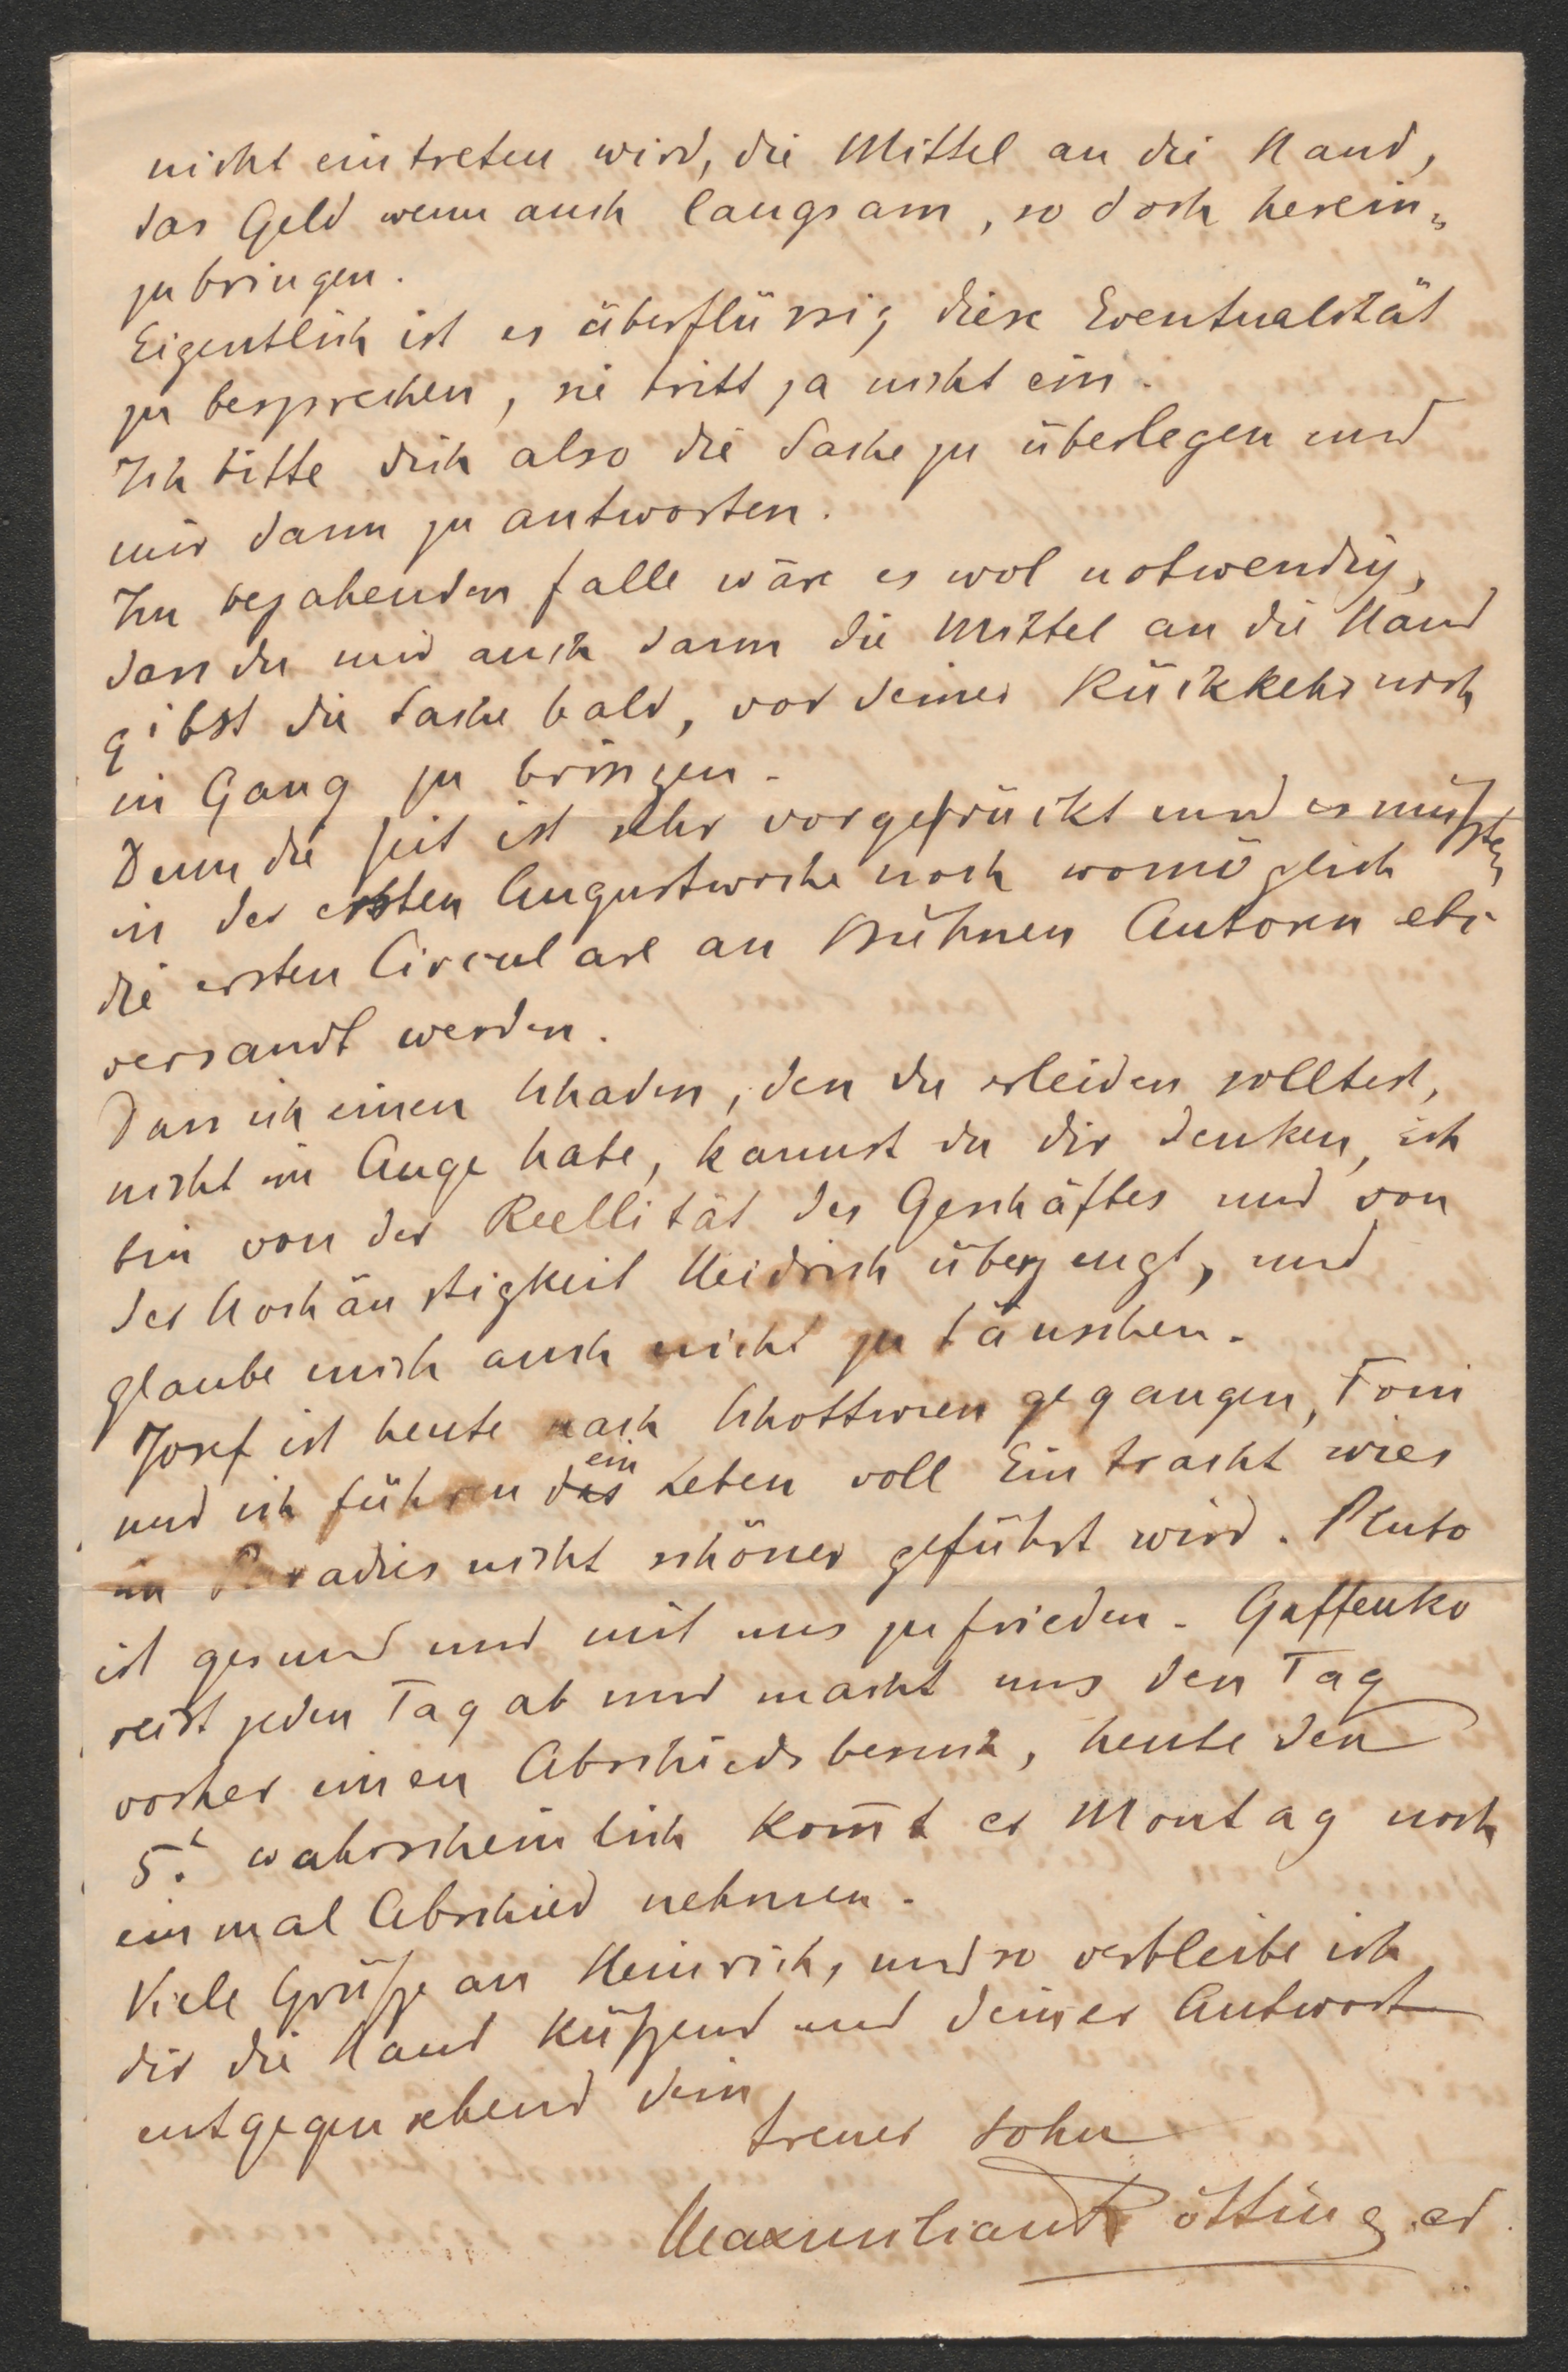 nicht eintreten wird, die Mittel an die Hand,
das Geld wenn auch langsam, so doch herein„
zubringen.
Eigentlich ist es überflüssig diese Eventualität
zu besprechen, sie tritt ja nicht ein.
Ich bitte dich also die Sache zu überlegen und
mir dann zu antworten.
Im bejahenden Falle wäre es wol notwendig,
dass du mir auch dann die Mittel an die Hand
gibst die Sache bald, vor deiner Rückkehr noch
in Gang zu bringen.
Denn die Zeit ist sehr vorgerückt und es müßten
in der ersten Augustwoche noch womöglich
die ersten Circulare an Bühnen Autoren etc
versandt werden.
Dass ich einen Schaden, den du erleiden solltest,
nicht im Auge habe, kannst du dir denken, ich
bin von der Reellität des Geschäftes und von
der Hochänstigkeit Heidrich überzeugt, und
glaube mich auch nicht zu täuschen.
Josef ist heute nach Schottwien gegangen, Toni
und ich führen ein Leben voll Eintracht wies
im Paradies nicht schöner geführt wird. Pluto
ist gesund und mit uns zufrieden. Gaffenko
reist jeden Tag ab und macht uns den Tag
vorher einen Abschiedsbesuch, heute den
5.t wahrscheinlich kom̅t er Montag noch
einmal Abschied nehmen.
Viele Grüße an Heinrich, und so verbleibe ich
dir die Hand küßend und deiner Antwort
entgegensehend dein
treuer Sohn
Maximilian Röttinger